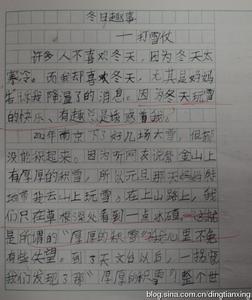 冬日趣事
——打雪仗
许多人不喜欢冬天，因为冬天太
寒冷。而我却喜欢冬天，尤其是妈妈
告诉我降温了的消息。因为冬天玩雪
的快乐、有趣总是诱惑着我。
年南京下了好几场大雪，但都
没能积起来。因为听网友说紫金山上
有厚厚的积雪，所以元旦那天妈妈
带我去山上玩雪。在上山路上，我
们只在草根深处看到一点冰
是所谓的“厚厚的积雪”我心里不免
有些失望。到了天文台以后，一
我们发现了那“厚厚的积雪”整个世
blog.sina.com.cn/dingtianxing